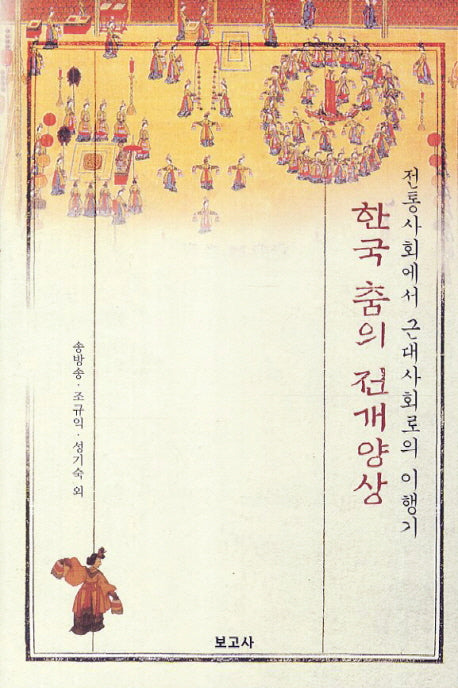 전통사회에서 근대사회로의 이행기
한국 춤의 전개양상
송방송·조규익·성기숙 외
보고사